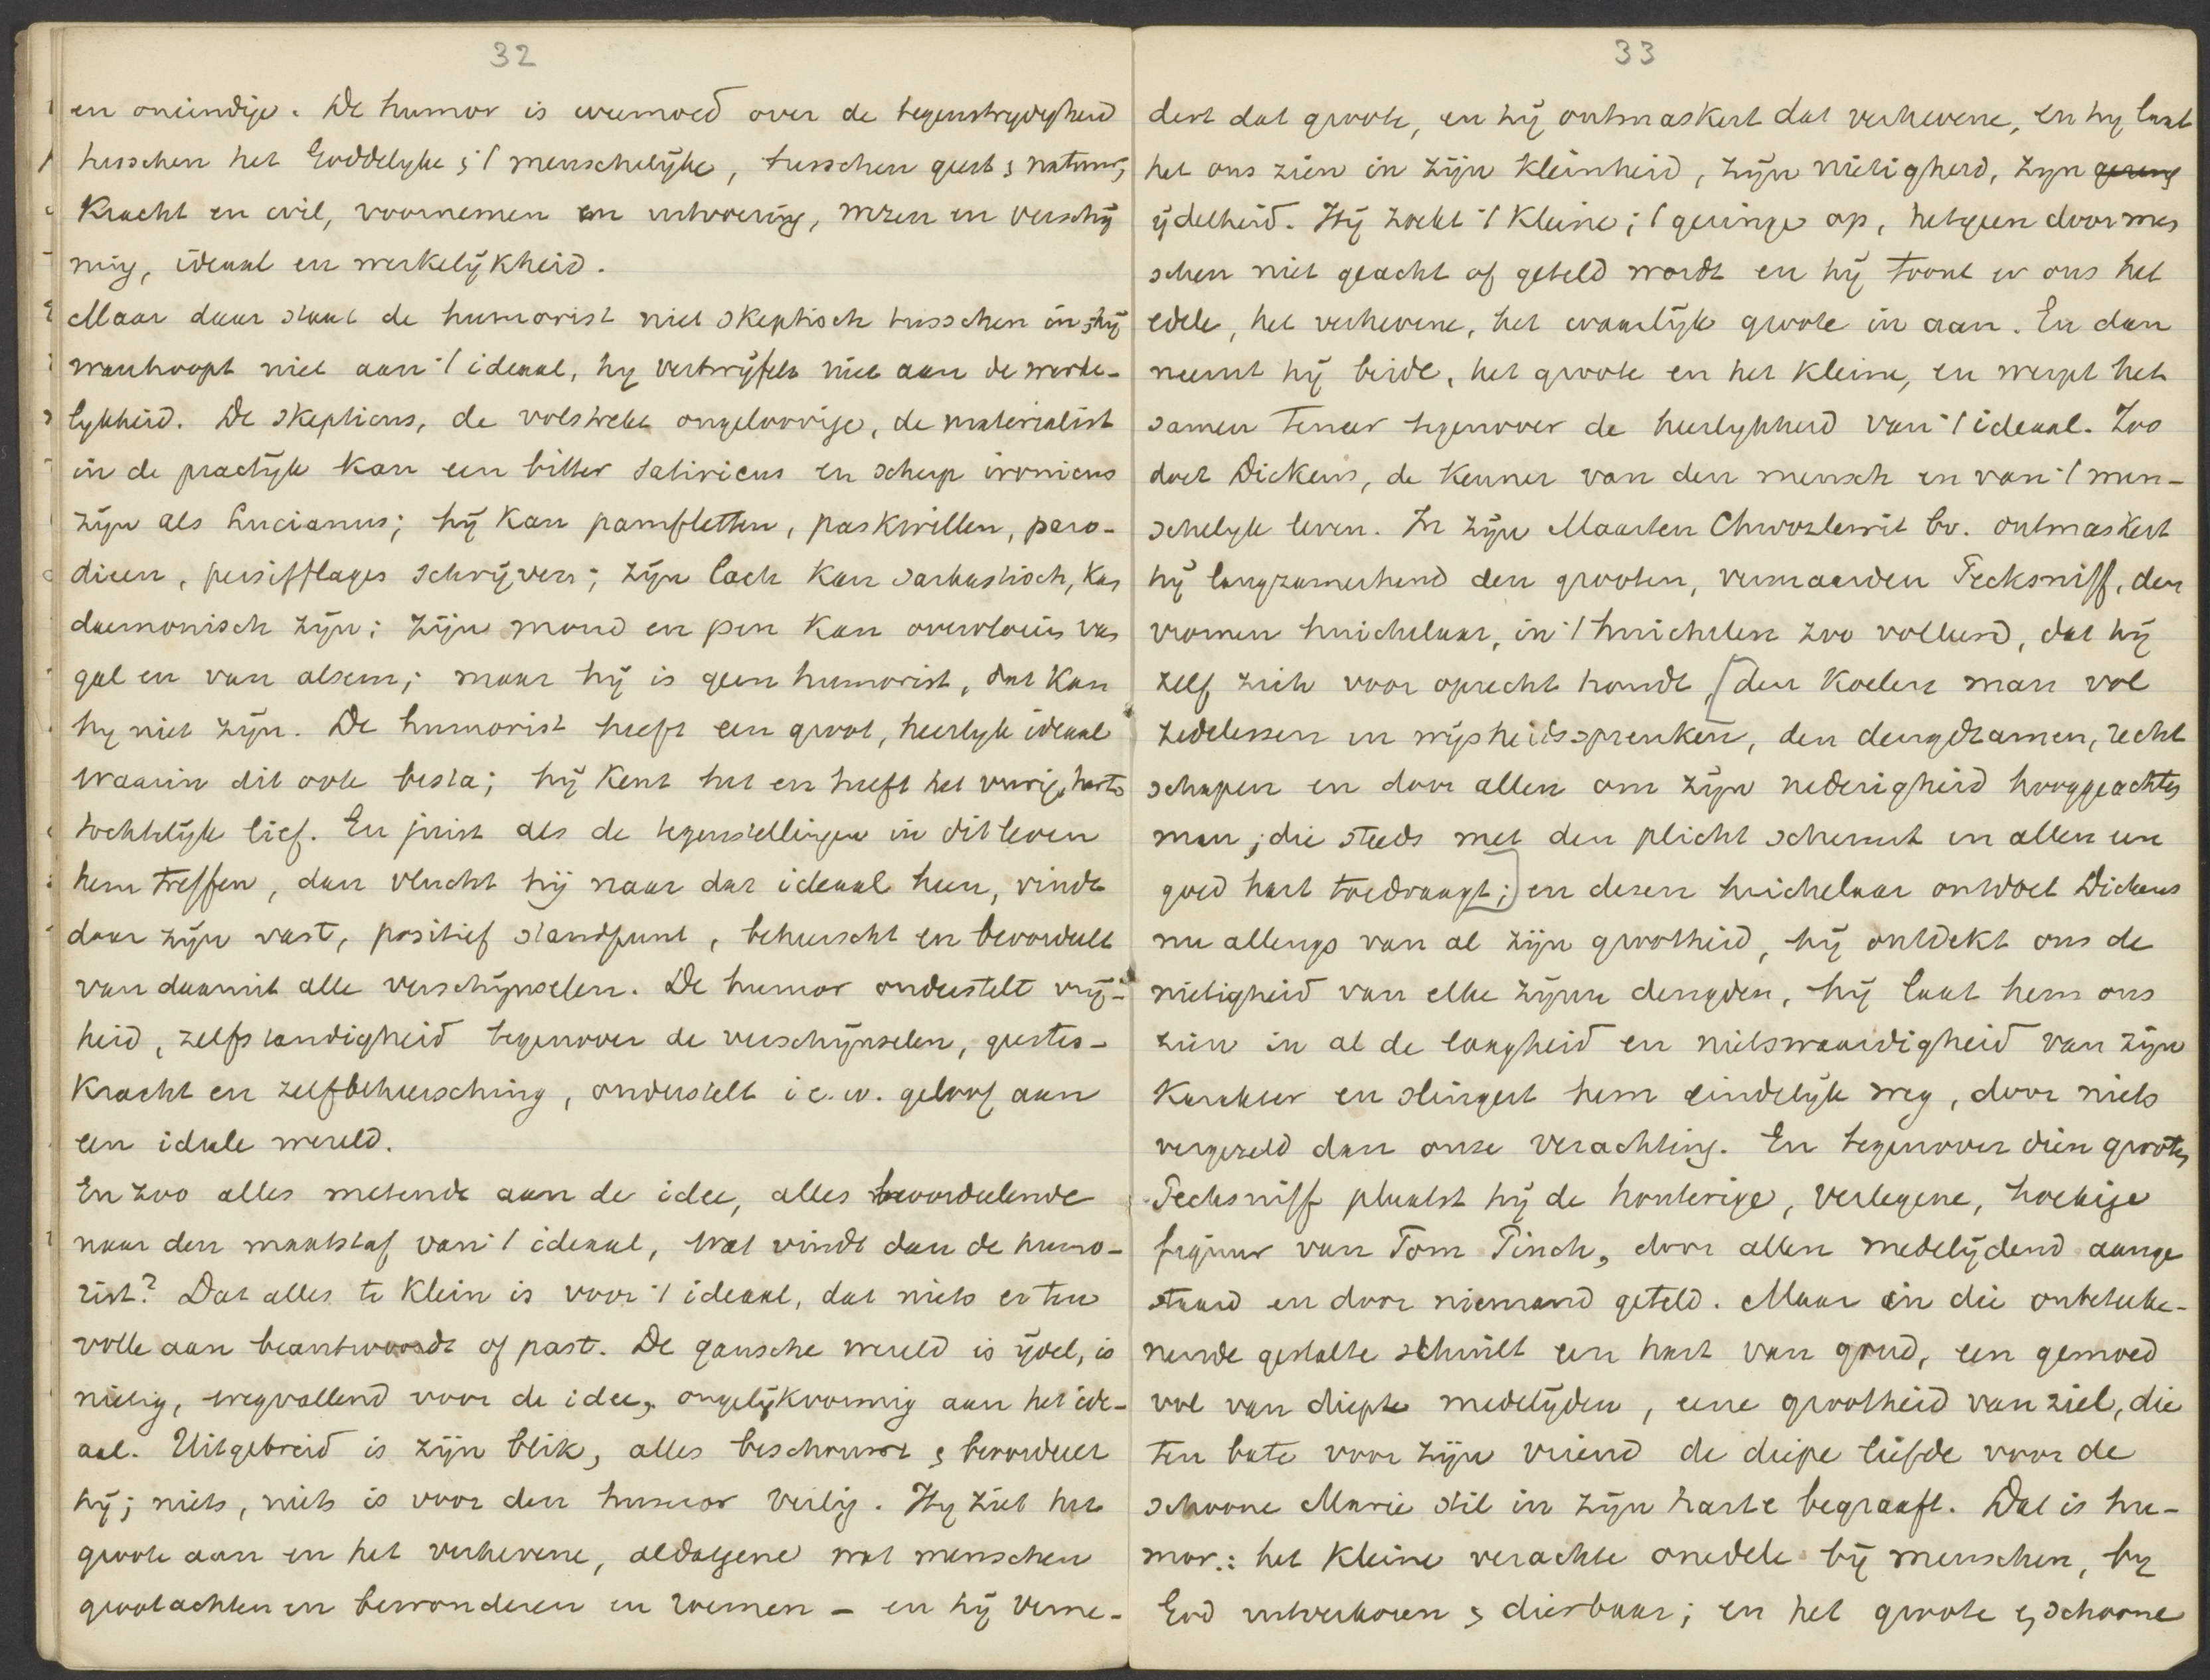 32
en oneindige. De humor is weemoed over de tegenstrydigheid
tusschen het Goddelyke & 't menschelijke, tusschen geest & natuur,
kracht en wil, voornemen en uitvoering, wezen en verschij
ning, ideaal en werkelijkheid.
Maar daar staat de humorist niet skeptisch tusschen in; hij
wanhoopt niet aan 't ideaal, hy vertwijfelt niet aan de werke-
lykheid. De skepticus, de volstrekt ongeloovige, de materialist
in de practijk kan een bitter satiricus en scherp ironicus
zijn als Lucianus; hij kan pamfletten, paskwillen, paro-
dieen, persifflages schrijven; zijn lach kan sarkastisch, kan
daemonisch zijn; zijn mond en pen kan overvloeien van
gal en van alsem; maar hij is geen humorist, dat kan
hy niet zijn. De humorist heeft een groot, heerlyk ideaal
waarin dit ook besta; hij kent het en heeft het vurig, harts
tochtelijk lief. En juist als de tegenstellingen in dit leven
hem treffen, dan vlucht hij naar dat ideaal heen, vindt
daar zijn vast, positief standpunt, beheerscht en beoordeelt
van daaruit alle verschijnselen. De humor onderstelt vrij-
heid, zelfstandigheid tegenover de verschijnselen, geestes-
kracht en zelfbeheersching, onderstelt i.e.w. geloof aan
een ideale wereld.
En zoo alles metende aan de idee, alles beoordeelende
naar den maatstaf van 't ideaal, wat vindt dan de humo-
rist? Dat alles te klein is voor 't ideaal, dat niets er ten
volle aan beantwoordt of past. De gansche wereld is ijdel, is
nietig, wegvallend voor de idee, ongelijkvormig aan het ide-
aal. Uitgebreid is zijn blik, alles beschouwt & beoordeelt
hij; niets, niets is voor den humor veilig. Hy ziet het
groote aan en het verhevene, aldatgene wat menschen
grootachten en bewonderen en roemen - en hij verne-
33
dert dat groote, en hij ontmaskert dat verhevene, en hy laat
het ons zien in zijn kleinheid, zijn nietigheid, zyn gering
ijdelheid. Hij zoekt 't kleine; 't geringe op, hetgeen door men
schen niet geacht of geteld wordt en hij toont er ons het
edele, het verhevene, het waarlijk groote in aan. En dan
neemt hij beide, het groote en het kleine, en werpt het
samen teneer tegenover de heerlykheid van 't ideaal. Zoo
doet Dickens, de kenner van den mensch en van 't men-
schelyk leven. In zijn Maarten Chwozlewit bv. ontmaskert
hij langzamerhand den grooten, vermaarden Pecksniff, den
vromen huichelaar, in 't huichelen zoo volleerd, dat hij
zelf zich voor oprecht houdt, [den koelen man vol
zedelessen en wijsheidsspreuken, den deugdzamen, recht
schapen en door allen om zijn nederigheid hooggeachten
man; die steeds met den plicht schermt en allen een
goed hart toedraagt;] en dezen huichelaar ontdoet Dickens
nu allengs van al zijn grootheid, hij ontdekt ons de
nietigheid van elke zijner deugden, hij laat hem ons
zien in al de laagheid en nietswaardigheid van zijn
karakter en slingert hem eindelijk weg, door niets
vergezeld dan onze verachting. En tegenover dien grooten
Pecksniff plaatst hij de houterige, verlegene, hoekige
figuur van Tom Pinch, door allen medelijdend aange
staard en door niemand geteld. Maar in die onbeteeke-
nende gestalte schuilt een hart van goud, een gemoed
vol van diepte medelijden, eene grootheid van ziel, die
ten bate voor zijn vriend de diepe liefde voor de
schoone Marie stil in zijn harte begraaft. Dat is hu-
mor.: het kleine verachte onedele bij menschen, by
God uitverkoren & dierbaar; en het groote & schoone